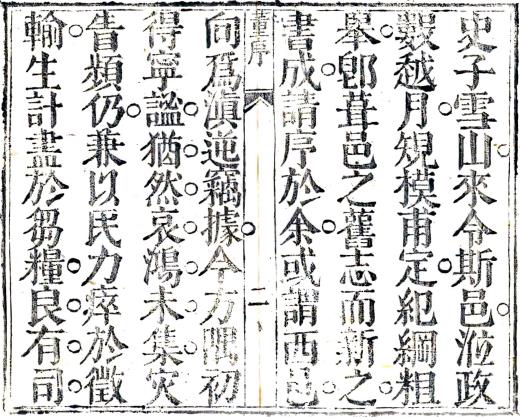 史子雪山來令斯邑涖政
數越月䂓模甫定紀綱粗
舉卽葺邑之舊志而新之
書成請序於余或謂西邑
董序
二
向爲滇逆竊據今方隅初
得寧謐猶然哀鴻未集災
眚頻仍兼以民力瘁於徵
輸生計盡於芻糧良有司